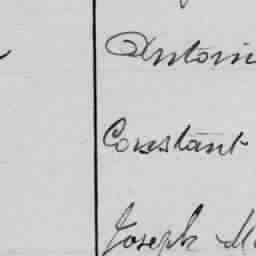 Antoin
Constant
Joseph M